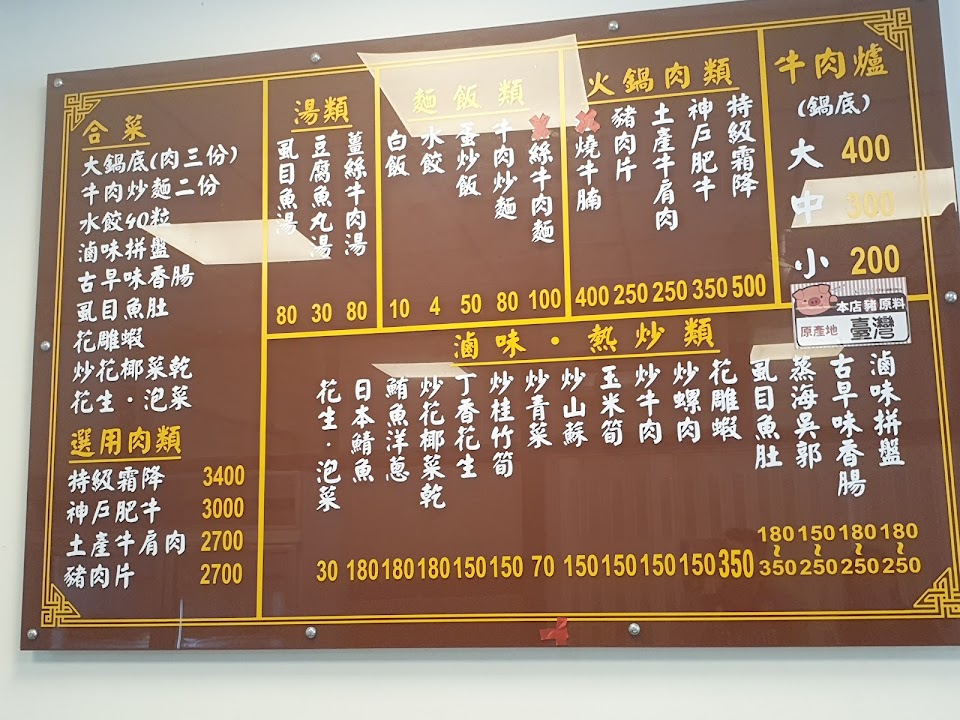 牛肉爐
(鍋底)
大 400
中 300
小 200
本店豬原料
原產地 臺灣
火鍋肉類
特級霜降 500
神戶肥牛 350
土產牛肩肉 250
豬肉片 250
燒牛腩 400
麵飯類
絲牛肉麵 100
牛肉炒麵 80
蛋炒飯 50
水餃 4
白飯 10
湯類
薑絲牛肉湯 80
豆腐魚丸湯 30
虱目魚湯 80
合菜
大鍋底(肉三份)
牛肉炒麵二份
水餃40粒
滷味拼盤
古早味香腸
虱目魚肚
花雕蝦
炒花椰菜乾
花生·泡菜
選用肉類
特級霜降 3400
神戶肥牛 3000
土產牛肩肉 2700
豬肉片 2700
滷味·熱炒類
滷味拼盤 180~250
古早味香腸 180~250
蒸海吳郭 150~250
虱目魚肚 180~350
花雕蝦 350
炒螺肉 150
炒牛肉 150
玉米筍 150
炒山蘇 150
炒青菜 70
炒桂竹筍 150
丁香花生 150
炒花椰菜乾 180
鮪魚洋蔥 180
日本鯖魚 180
花生·泡菜 30